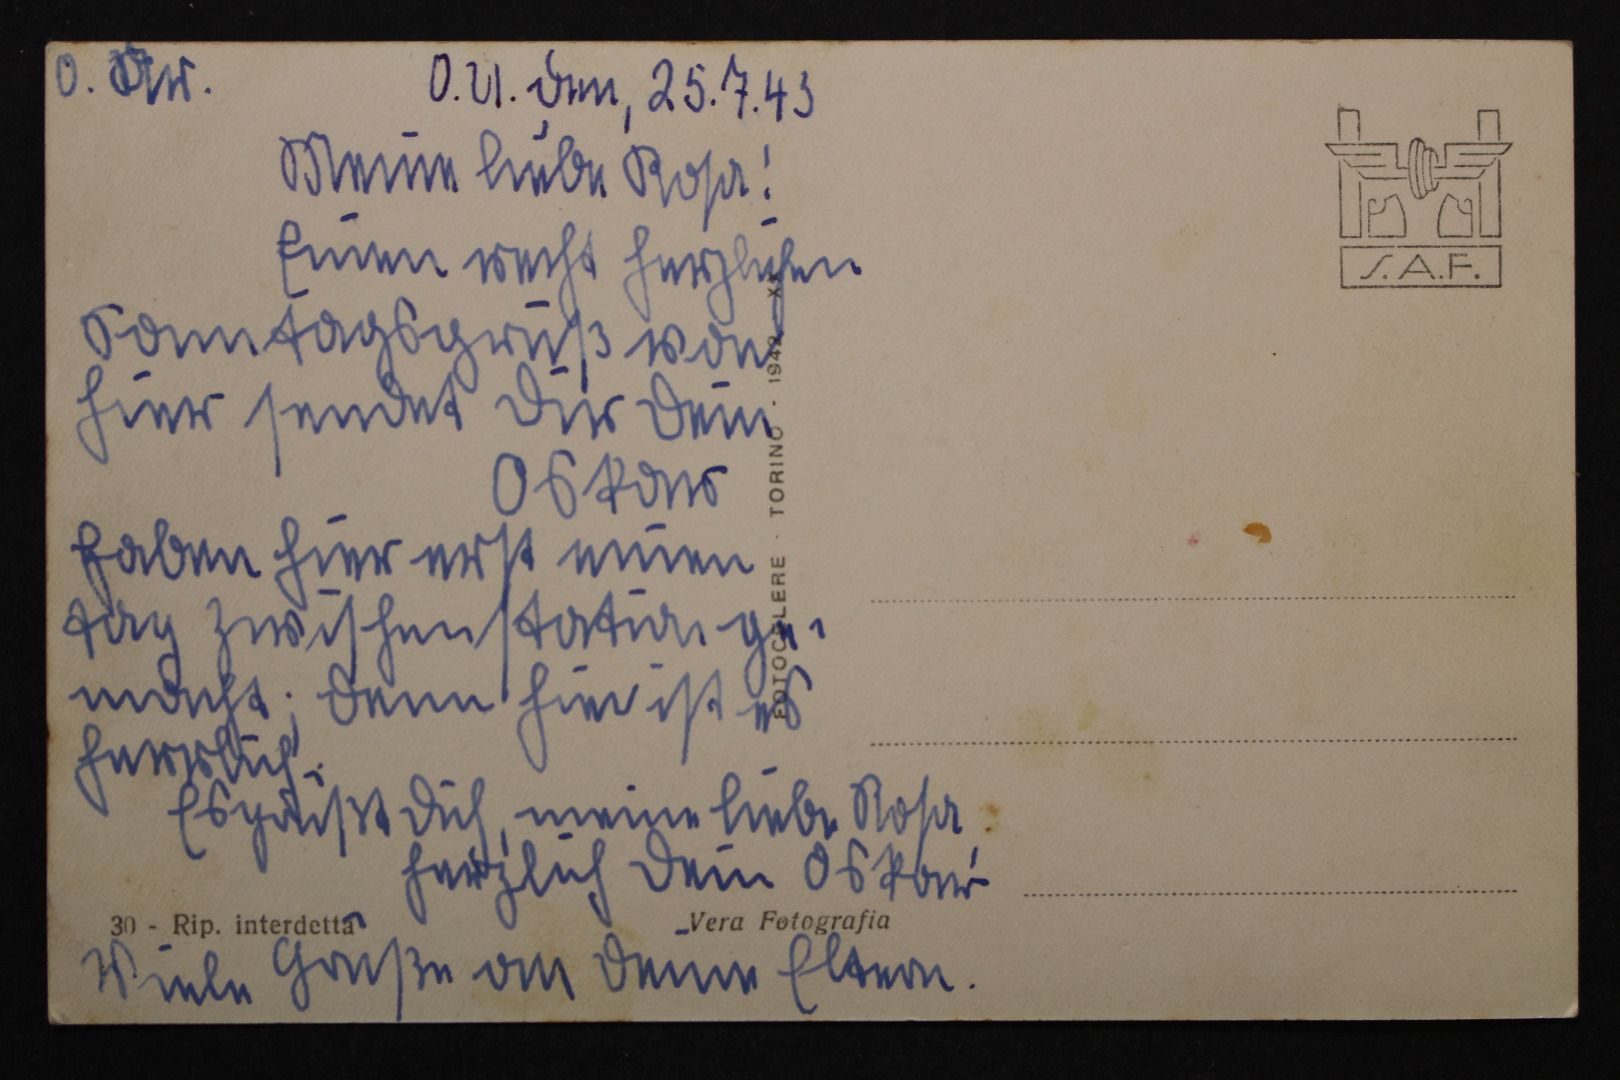 O.U. den, 25.7.43
Meine liebe Rosa!
Einen recht herzlichen
Sonntagsgruß von
hier sendet Dir Dein
Oskar
Haben hier erst einen
tag zwischenstation ge-
macht; denn hier ist es
herrlich.
Es grüßt Dich, meine liebe Rosa
herzlich Dein Oskar
Viele Grüße an Deine Eltern.
S.A.F.
FOTOCELERE · TORINO · 1942 XX
30 - Rip. interdetta
Vera Fotografia